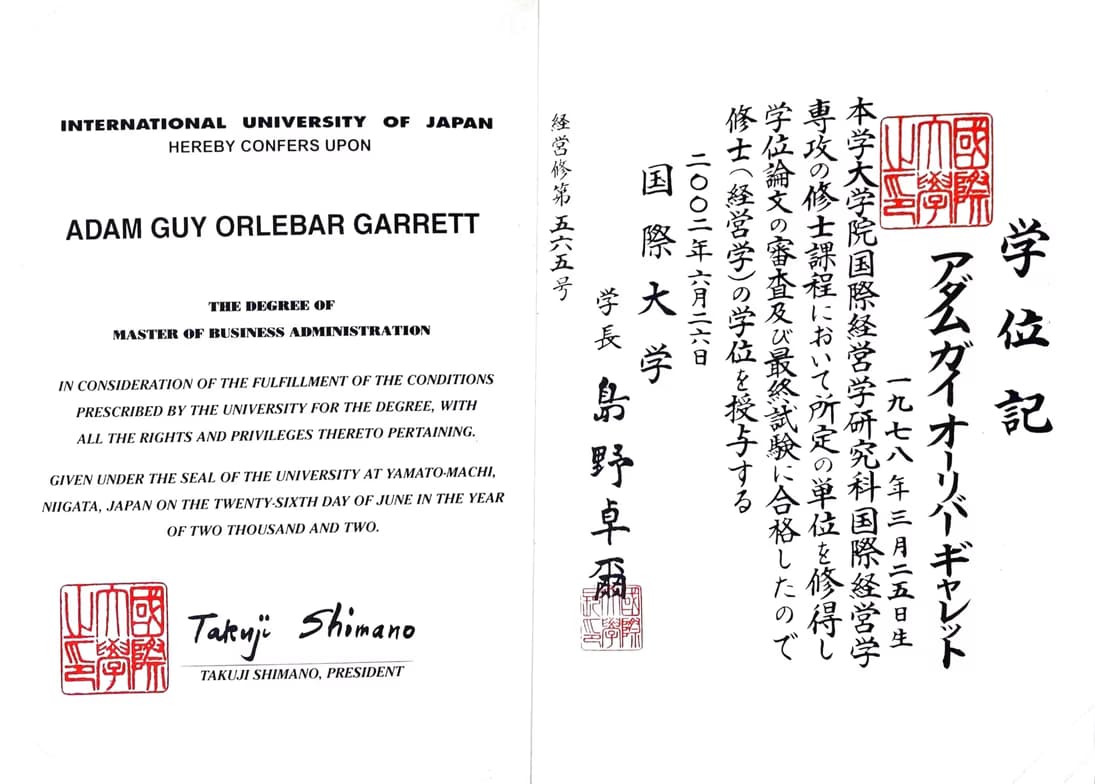 INTERNATIONAL UNIVERSITY OF JAPAN
HEREBY CONFERS UPON
ADAM GUY ORLEBAR GARRETT
THE DEGREE OF
MASTER OF BUSINESS ADMINISTRATION
IN CONSIDERATION OF THE FULFILLMENT OF THE CONDITIONS
PRESCRIBED BY THE UNIVERSITY FOR THE DEGREE, WITH
ALL THE RIGHTS AND PRIVILEGES THERETO PERTAINING.
GIVEN UNDER THE SEAL OF THE UNIVERSITY AT YAMATO-MACHI,
NIIGATA, JAPAN ON THE TWENTY-SIXTH DAY OF JUNE IN THE YEAR
OF TWO THOUSAND AND TWO.
國際大學之印
Takuji Shimano
TAKUJI SHIMANO, PRESIDENT
学位記
國際大學之印
アダム ガイ オーリバー ギャレット
一九七八年三月二五日生
本学大学院国際経営学研究科国際経営学
専攻の修士課程において所定の単位を修得し
学位論文の審査及び最終試験に合格したので
修士(経営学)の学位を授与する
二〇〇二年六月二六日
国際大学
学長 島野卓爾
経営修第五六五号